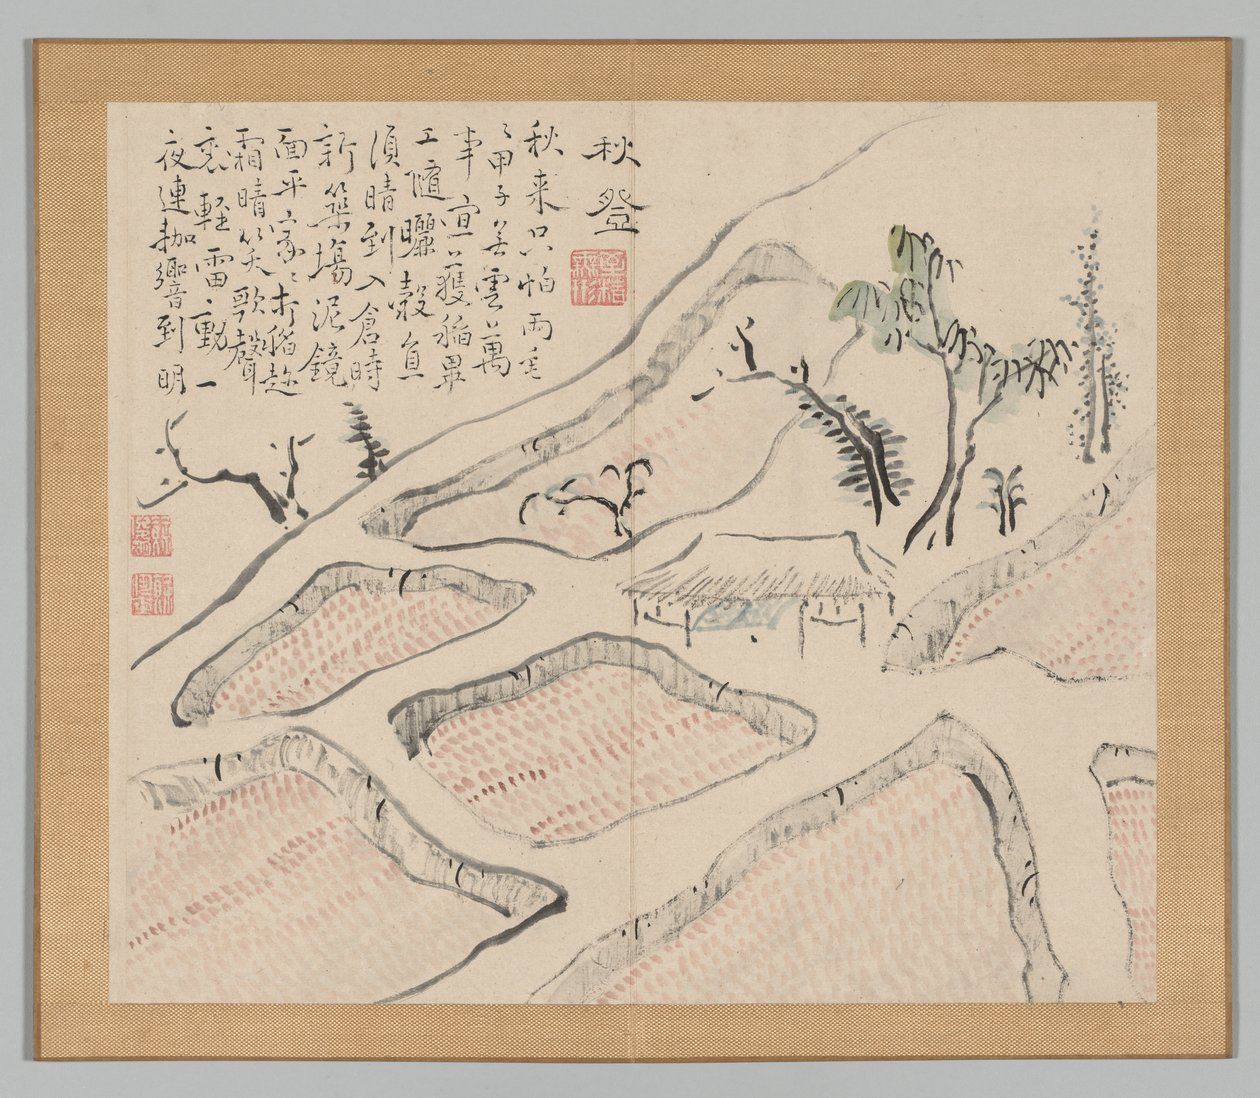 秋登
秋来只怕雨垂
〻甲子無雲萬
事宜穫稲畢
工隨曬穀直
須晴到入倉時
新築塲泥鏡
面平家〻打稲趂
霜晴笑歌聲
裏輕雷動一
夜連耞響到明